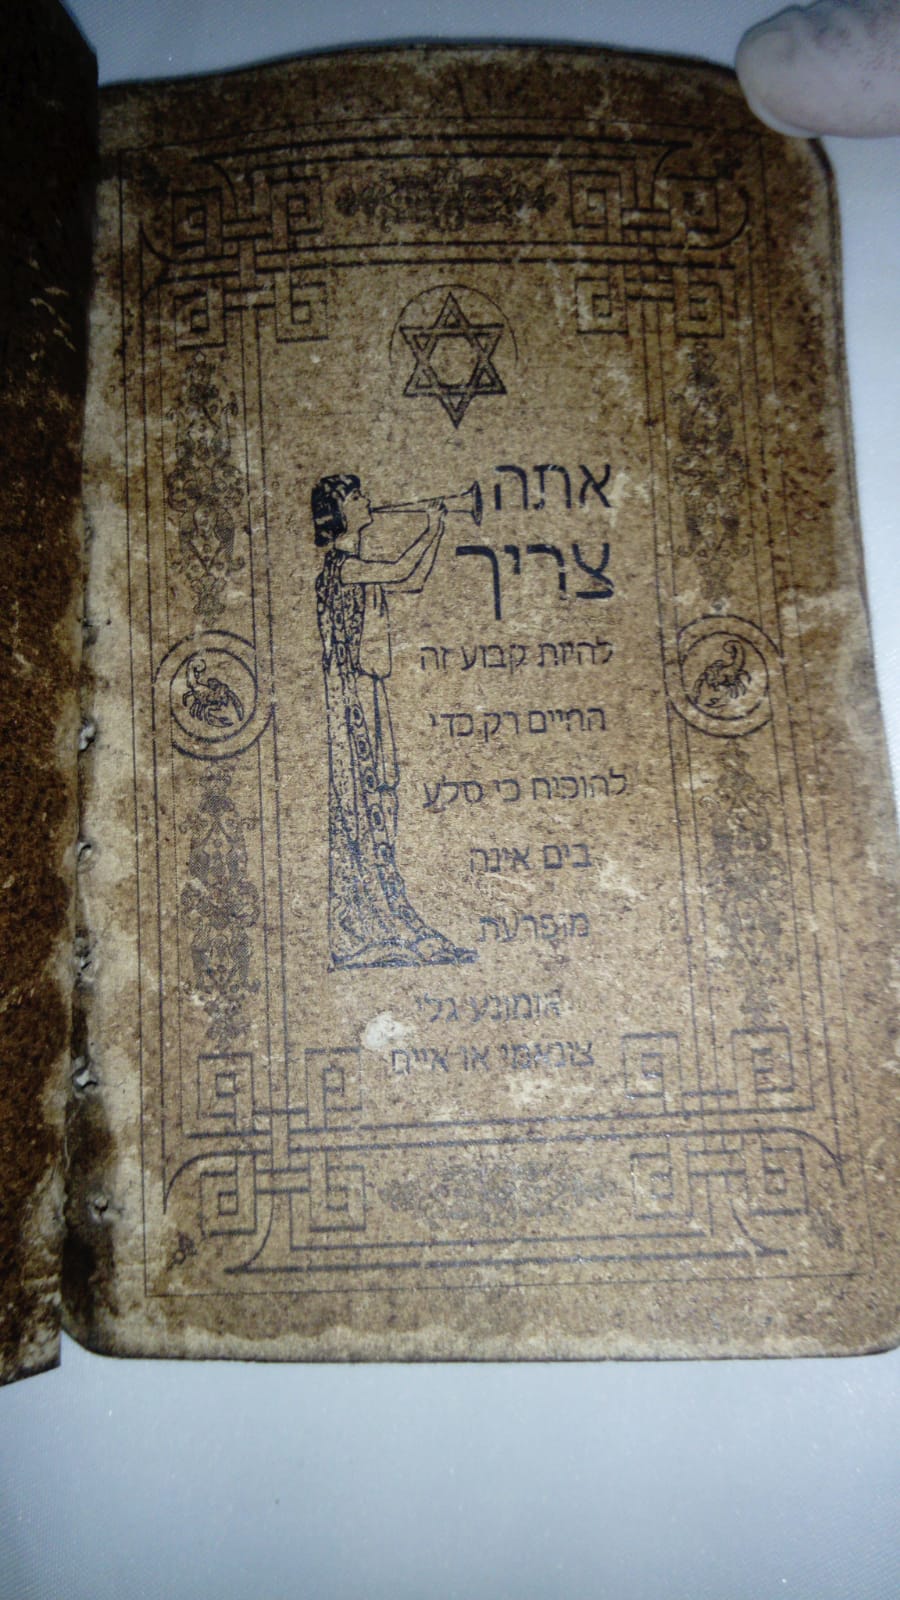 אתה
צריך
להיות קבוע זה
החיים רק כדי
להוכיח כי סלע
בים אינה
מופרעת
ומונע גלי
צונאמי או איים